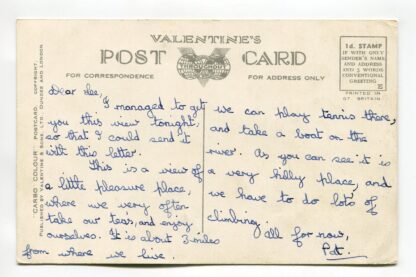 VALENTINE'S
POST CARD
FOR CORRESPONDENCE
FOR ADDRESS ONLY
1d. STAMP
IF WITH ONLY
SENDER'S NAME
AND ADDRESS
AND 5 WORDS
CONVENTIONAL
GREETING
E
PRINTED IN
GT. BRITAIN
"CARBO COLOUR" POSTCARD. COPYRIGHT
PUBLISHED BY VALENTINE & SONS LTD. DUNDEE AND LONDON
Dear
I managed to get
you this view tonight,
so that I could send it
with this letter.
This is a view of
a little pleasure place,
where we very often
take our tea's, and enjoy
ourselves. It is about 3 miles
from where we live.
we can play tennis there,
and take a boat on the
river. As you can see it is
a very hilly place, and
we have to do lots of
climbing.
All for now,
Pat.